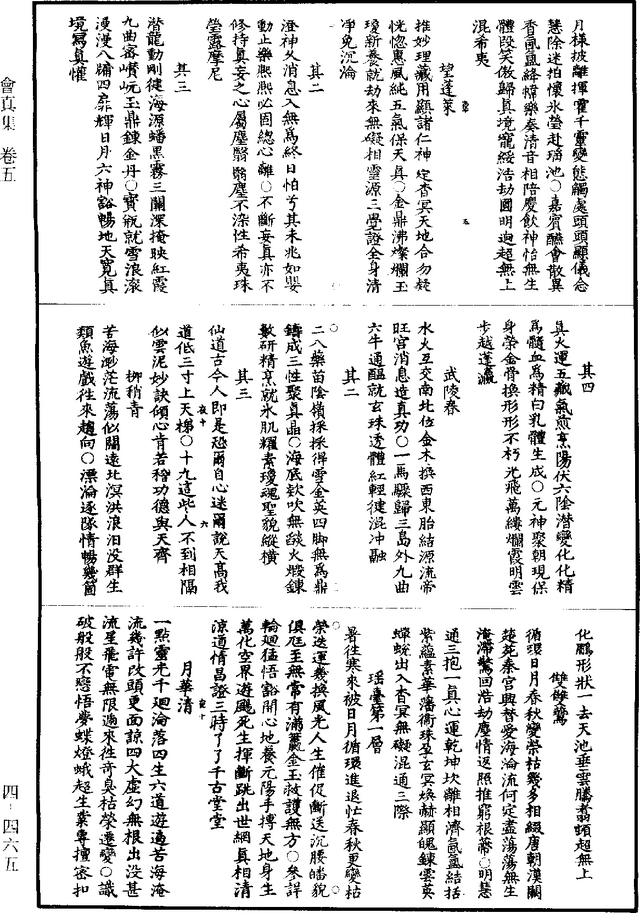 會真集　卷五
月樣披離揮霍千靈變態觸處頭頭顯儀念
慧除迷拍懷氷瑩赴瑤池○嘉賓醼會散異
香氤氳絳幃樂奏清音相陪慶飲神怡無生
體段笑傲歸真境寵綏浩劫圓明迥超無上
混希夷
望蓬萊
推妙理藏用顯諸仁神定杳冥天地合勿疑
恍惚惠風純五氣保天真○金鼎沸燦爛玉
瓊新養就劫來無礙相靈源三覺證全身清
凈免沉淪
其二
澄神久消息入無為終日怕兮其未兆如嬰
動止樂熙熙必固總心離○不斷妄真亦不
修持真妄之心屬塵翳翳塵不染性希夷珠
瑩露摩尼
其三
潛龍動剛健海源蟠黑霧三關深掩映紅霞
九曲密嶙岏玉鼎鍊金丹○寶瓶就雪浪滾
漫漫八牖四扉輝日月六神谿暢地天寬真
境寫真懽
其四
真火運五藏氣煎烹陽伏六陰潛變化化精
為髓血為精白乳體生成○元神聚朝現保
身榮金骨換形形不朽光飛萬縷爛霞明雲
步越蓬瀛
武陵春
水火互交南北位金木換西東胎結源流帝
旺宮消息造真功○一馬驟歸三島外九曲
六牛通醞就玄珠透體紅輕健混冲融
其二
二八藥苗陰嶺採採得雪金英四脚無為鼎
鑄成三性聚真晶○海底欻吹無𦦨火煅鍊
數研精烹就氷肌耀素瓊魂聖貌縱橫
其三
仙道古今人即是恐爾自心迷爾說天高我
道低三寸上天梯○十九這些人不到相隔
似雲泥妙訣傾心肯若稽功德與天齊
柳稍青
苦海渺茫流蕩似關遠北溟洪浪汨没群生
類魚遊戲往來趨向○漂淪逐隊情暢幾箇
化鵬形狀一去天池垂雲騰翥頓超無上
雙鴈鷰
循環日月春秋變榮枯幾多相綴唐朝漢闕
楚苑秦宮興替愛海淪流何定盡蕩蕩無生
淹滯驚回浩劫塵情返照推窮根蔕○明慧
通三抱一真心運乾坤坎離相濟氤氳結括
紫蘊素華藩衛珠盈玄冥煥赫顯魄鍊雲英
蟬蛻出入杳冥無礙混通三際
瑤臺第一層
暑往寒來被日月循環進退忙春秋更變枯
榮迭運幾換風光人生催促斷送沉腰皤貌
俱尫王無常有滿籯金玉救護無方○叅詳
輪廻猛悟豁開心地養元陽手摶天地身生
萬化空界遊颺死生揮斷跳出世網真相清
涼道情昌證三時了了千古堂堂
月華清
一點靈光千廻淪落四生六道遊遍苦海淹
流幾許改頭更面諒四大虛幻無根出没甚
流星飛電無限過來徃苛臭枯榮遷變○識
破般般不戀悟夢蝶燈蛾超生業專擅密扣
四‐四六五